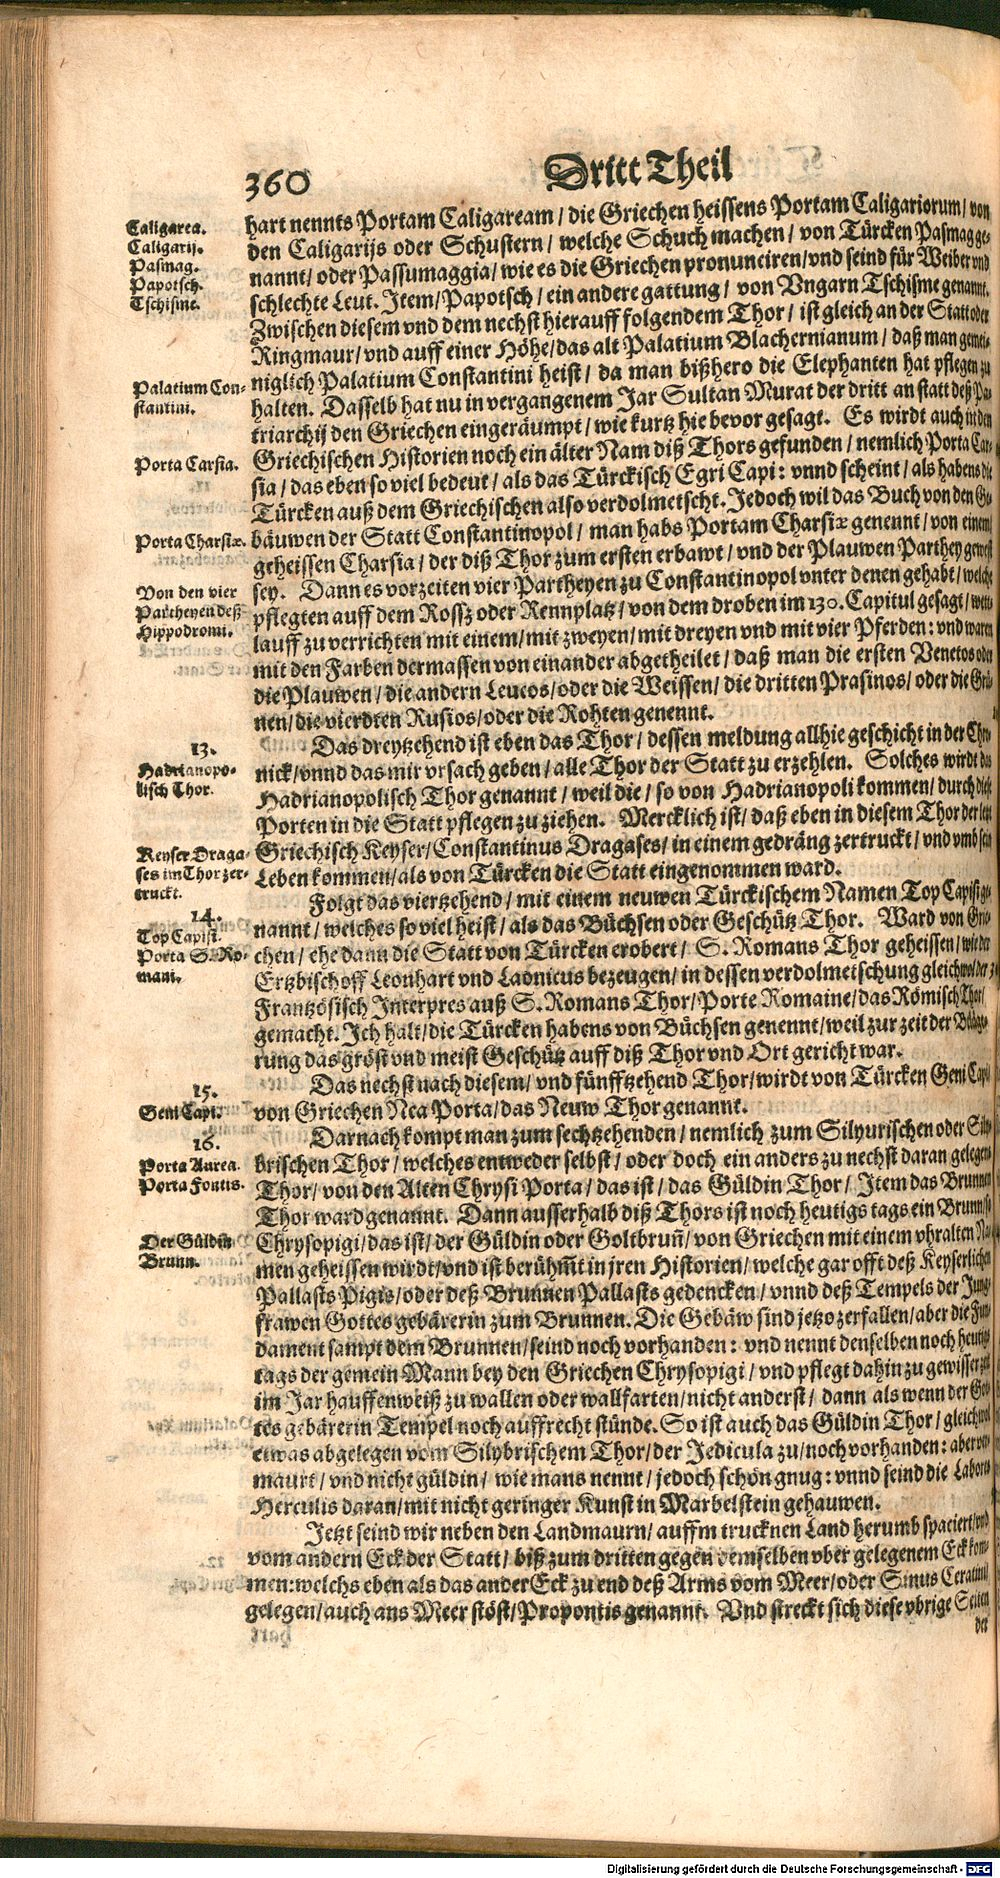 360
Dritt Theil
Caligarea.
Caligarij.
Pasmag.
Papotsch.
Tschisme.
hart nennts Portam Caligaream / die Griechen heissens Portam Caligariorum / von
den Caligarijs oder Schustern / welche Schuch machen / von Türcken Pasmag ge-
nannt / oder Passumaggia / wie es die Griechen pronunciren / vnd seind für Weiber vnd
schlechte Leut. Item / Papotsch / ein andere gattung / von Vngarn Tschisme genannt.
Zwischen diesem vnd dem nechst hierauff folgendem Thor / ist gleich an der Statt oder
Ringmaur / vnd auff einer Höhe / das alt Palatium Blachernianum / daß man gemei-
Palatium Con-
stantini.
niglich Palatium Constantini heist / da man bißhero die Elephanten hat pflegen zu
halten. Dasselb hat nu in vergangenem Jar Sultan Murat der dritt an statt deß Pa-
triarchij den Griechen eingeräumpt / wie kurtz hie bevor gesagt. Es wirdt auch in den
Porta Carsia.
Griechischen Historien noch ein älter Nam diß Thors gefunden / nemlich Porta Car-
sia / das eben so viel bedeut / als das Türckisch Egri Capi: vnnd scheint / als habens die
Türcken auß dem Griechischen also verdolmetscht. Jedoch wil das Buch von den Ge-
Porta Charsiæ.
bäuwen der Statt Constantinopol / man habs Portam Charsiæ genennt / von einem /
geheissen Charsia / der diß Thor zum ersten erbawt / vnd der Plauwen Parthey gewest
Von den vier
Partheyen deß
Hippodromi.
sey. Dann es vorzeiten vier Partheyen zu Constantinopol vnter denen gehabt / welche
pflegten auff dem Rossz oder Rennplatz / von dem droben im 130. Capitul gesagt / wett-
lauff zu verrichten mit einem / mit zweyen / mit dreyen vnd mit vier Pferden: vnd waren
mit den Farben dermassen von einander abgetheilet / daß man die ersten Venetos oder
die Plauwen / die andern Leucos / oder die Weissen / die dritten Prasinos / oder die Grü-
nen / die vierdten Rusios / oder die Rohten genennt.
13.
Hadrianopo-
lisch Thor.
Das dreytzehend ist eben das Thor / dessen meldung allhie geschicht in der Chro-
nick / vnnd das mir vrsach geben / alle Thor der Statt zu erzehlen. Solches wirdt das
Hadrianopolisch Thor genannt / weil die / so von Hadrianopoli kommen / durch diese
Porten in die Statt pflegen zu ziehen. Mercklich ist / daß eben in diesem Thor der letzt
Keyser Draga-
ses im Thor zer-
truckt.
Griechisch Keyser / Constantinus Dragases / in einem gedräng zertruckt / vnd vmb sein
Leben kommen / als von Türcken die Statt eingenommen ward.
14.
Top Capisi.
Porta S. Ro-
mani.
Folgt das viertzehend / mit einem neuwen Türckischem Namen Top Capisi ge-
nannt / welches so viel heist / als das Büchsen oder Geschütz Thor. Ward von Grie-
chen / ehe dann die Statt von Türcken erobert / S. Romans Thor geheissen / wie der
Ertzbischoff Leonhart vnd Laonicus bezeugen / in dessen verdolmetschung gleichwol der
Frantzösisch Interpres auß S. Romans Thor / Porte Romaine / das Römisch Thor /
gemacht. Ich halt / die Türcken habens von Büchsen genennt / weil zur zeit der Beläge-
rung das gröst vnd meist Geschütz auff diß Thor vnd Ort gericht war.
15.
Geni Capi.
Das nechst nach diesem / vnd fünfftzehend Thor / wirdt von Türcken Geni Capi
von Griechen Nea Porta / das Neuw Thor genannt.
16.
Porta Aurea.
Porta Fontis.
Darnach kompt man zum sechtzehenden / nemlich zum Silyurischen oder Sily-
brischen Thor / welches entweder selbst / oder doch ein anders zu nechst daran gelegens
Thor / von den Alten Chrysi Porta / das ist / das Güldin Thor / Item das Brunnen
Thor ward genannt. Dann ausserhalb diß Thors ist noch heutigs tags ein Brunn / so
Der Güldin
Brunn.
Chrysopigi / das ist / der Güldin oder Goltbrun̄ / von Griechen mit einem vhralten Na-
men geheissen wirdt / vnd ist berühm̄t in jren Historien / welche gar offt deß Keyserlichen
Pallasts Pigis / oder deß Brunnen Pallasts gedencken / vnnd deß Tempels der Jung-
frawen Gottes gebärerin zum Brunnen. Die Gebäw sind jetzo zerfallen / aber die Fun-
dament sampt dem Brunnen / seind noch vorhanden: vnd nennt denselben noch heutigs
tags der gemein Mann bey den Griechen Chrysopigi / vnd pflegt dahin zu gewisser zeit
im Jar hauffenweiß zu wallen oder wallfarten / nicht anderst / dann als wenn der Got-
tes gebärerin Tempel noch auffrecht stünde. So ist auch das Güldin Thor / gleichwol
etwas abgelegen vom Silybrischem Thor / der Jedicula zu / noch vorhanden: aber ver-
maurt / vnd nicht güldin / wie mans nennt / jedoch schön gnug: vnnd seind die Labores
Herculis daran / mit nicht geringer Kunst in Marbelstein gehauwen.
Jetzt seind wir neben den Landmaurn / auffm trucknen Land herumb spaciert / vnd
vom andern Eck der Statt / biß zum dritten gegen demselben vber gelegenem Eck kom-
men: welchs eben als das ander Eck zu end deß Arms vom Meer / oder Sinus Ceratini
gelegen / auch ans Meer stöst / Propontis genannt. Vnd streckt sich diese vbrige Seiten
der
Digitalisierung gefördert durch die Deutsche Forschungsgemeinschaft - DFG